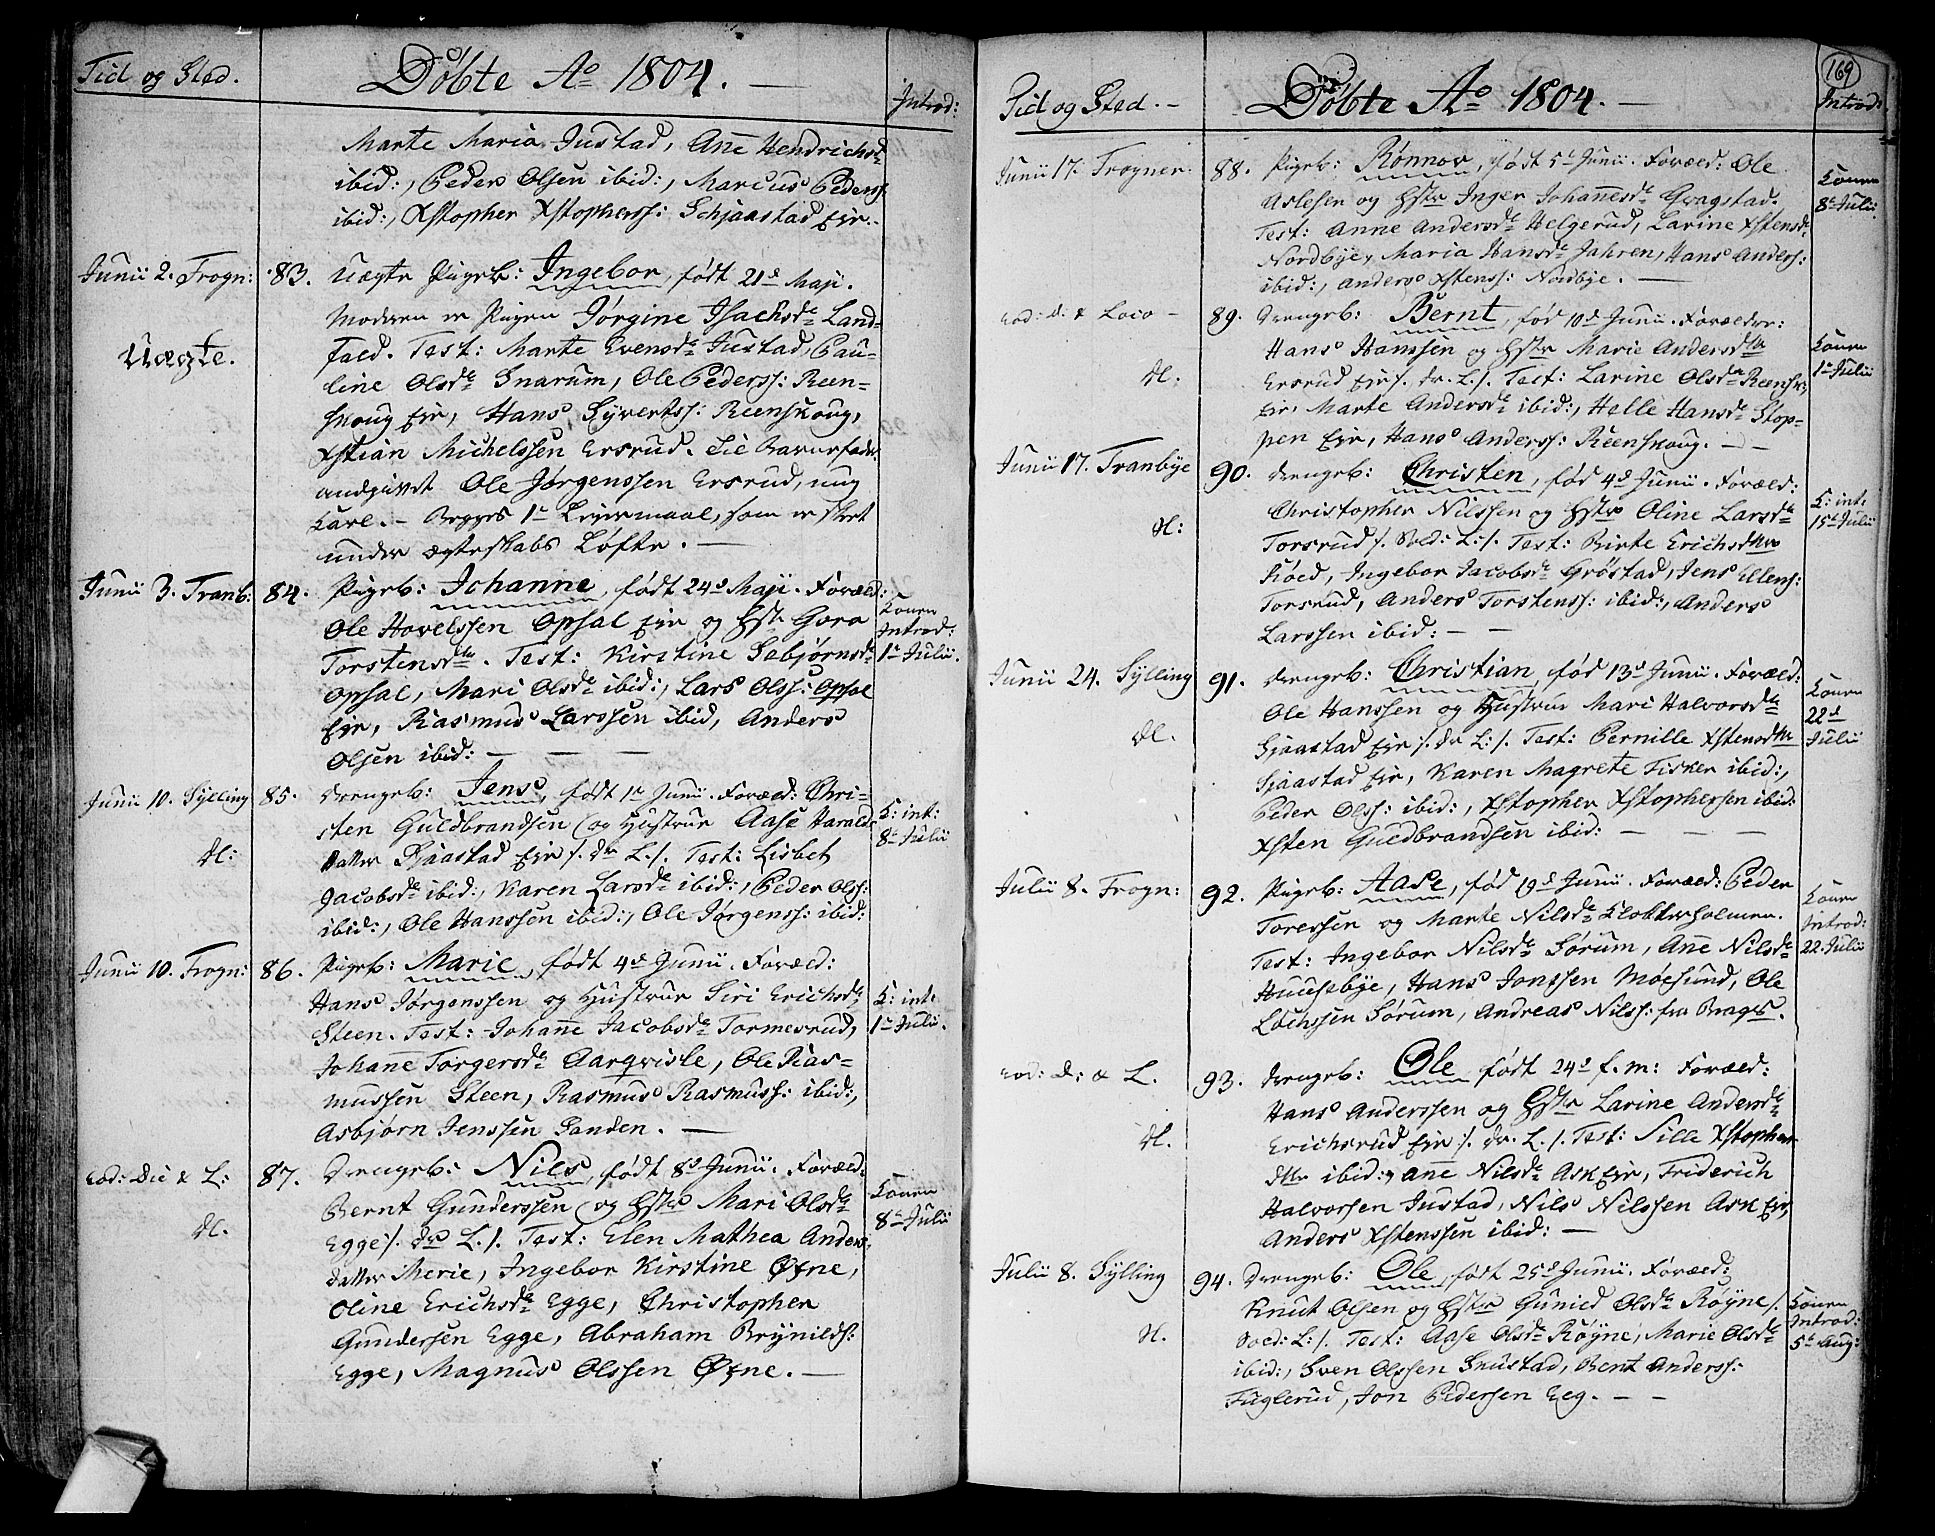 Tid og Sted.
Döbte Ao 1804. —
Introd:
Marte Maria Justad, Añe Hendrichsdr
ibid:, Peder Olsen ibid:, Marcus Peders:
ibid:, Xstopher Xstophers: Schjaastad Eje.
Junii 2. Frogn:
Uægte.
83. Uægte Pigeb: Ingebor, født 21d Maji.
Moderen er Pigen Jørgine Isachsdr Land-
fald. Test: Marte Evensdr Justad, Pau-
line Olsdr Snarum, Ole Peders: Reen-
skoug Eje, Hans Syverts: Reenskoug,
Xstian Michelssen Ersrud. Til Barnefader
andgivet Ole Jørgenssen Ersrud, ung
Karl. — Begges 1te Leiermaal, som er skeet
under Ægteskabs Løfte. —
Junii 3. Tranb:
84. Pigeb: Johanne, født 24d Maji. Foræld:
Ole Hovelssen Opsal Eje og Hstr Goro
Torstensdtr. Test: Kirstine Sebjørnsdr
Opsal, Mari Olsdr ibid:, Lars Olss: Opsal
Eje, Rasmus Larssen ibid, Anders
Olsen ibid: — — —
Konen
Introd:
1te Julii.
Junii 10. Sylling
dl:
85. Drengeb: Jens, født 1te Junii. Foræld: Chri-
sten Guldbrandsen og Hustrue Aase Harald-
datter Sjaastad Eje /. dr L: /. Test: Lisbet
Jacobsdr ibid:, Karen Larsdr ibid:, Peder Olss:
ibid:, Ole Hanssen ibid:, Ole Jørgenss: ibid:
K: int:
8de Julii
Junii 10. Frogn:
86. Pigeb: Marie, født 4de Junii. Foræld:
Hans Jørgenssen og Hustrue Siri Erichsdr
Steen. Test: Johañe Jacobsdr Tormesrud,
Johañe Torgersdr Aarqvisle, Ole Ras-
mussen Steen, Rasmus Rasmuss: ibid:,
Asbjørn Jenssen Sanden. —
K: int:
1te Julii.
eod: Die & L:
dl.
87. Drengeb: Nils, født 8d Junii. Foræld:
Bernt Gunderssen og Hstr Mari Olsdr
Egge /. dr L. /. Test: Elen Mathea Anders
datter Merie, Ingebor Kirstine Øfne,
Oline Erichsdr Egge, Christopher
Gundersen Egge, Abraham Brynilds:
Egge, Magnus Olssen Øfne. —
Konen
8de Julii
169
Tid og Sted. —
Döbte Ao 1804. —
Introd:
Junii 17. Frogner.
88. Pigeb: Rönnov, født 5te Junii. Foræld: Ole
Aslesen og Hstr Inger Johañesdr Gragstad.
Test: Anne Andersdr Helgerud, Larine Xstensdr
Nordbye, Maria Hansdr Jahren, Hans Anders:
ibid:, Anders Xstenss: Nordbye. —
Konen
8de Julii
eod: d: & Loco —
dl:
89. Drengeb: Bernt, fød 10d Junii. Forældre:
Hans Hanssen og Hstr Marie Andersdtr
Ersrud Eje /. dr. L. /. Test: Larine Olsdr Reensk:
Eje, Marte Andersdr ibid:, Helle Hansdr Stop-
pen Eje, Hans Anderss: Reenskoug. — —
Konen
1te Julii
Junii 17. Tranbye
dl:
90. Drengeb: Christen, fød 4d Junii. Foræld:
Christopher Nilssen og Hstr Oline Larsdr
Torsrud /. Soed: L: /. Test: Birte Erichsdtr
Kioed, Ingebor Jacobsdr Gröstad, Jens Ellens:
Torsrud, Anders Torstenss: ibid:, Anders
Larssen ibid: — —
K: int:
15de Julii
Junii 24. Sylling
dl.
91. Drengeb: Christian, fød 13d Junii. Foræld:
Ole Hanssen og Hustrue Mari Halvorsdr
Sjaastad Eje /. dr L: /. Test: Pernille Xstensdtr
Sjaastad Eje, Karen Magrete Fisker ibid:,
Peder Olss: ibid:, Xstopher Xstophersen ibid:
Xsten Guldbrandsen ibid: — — —
Konen
22d
Julii
Julii 8. Frogn:
92. Pigeb: Aase, fød 19d Junii. Foræld: Peder
Toressen og Marte Nilsdr Klokkerholmen.
Test: Ingebor Nilsdr Sørum, Añe Nilsdr
Huusebye, Hans Jonssen Moesund, Ole
Lochssen Sørum, Andreas Nilss: fra Brags.
Konen
Introd:
22. Julii
eod: d: & L.
dl.
93. Drengeb: Ole født 24d f. m: Foræld:
Hans Anderssen og Hstr Larine Andersdr
Erichsrud Eje /. dr. L. /. Test: Sille Xstopher
dtr ibid:, Añe Nilsdr Ask Eje, Friderich
Halvorsen Justad, Nils Nilssen Ask Eje,
Anders Xstenssen ibid: —
Julii 8. Sylling
dl.
94. Drengeb: Ole, født 25d Junii. Foræld:
Knut Olsen og Hstr Gunild Olsdr Röyne /.
Soed: L: /. Test: Aase Olsdr Röyne, Marie Olsdr
ibid:, Sven Olssen Snustad, Bent Anders:
Fuglerud, Jon Pedersen Eeg. — —
Konen
Introd:
5te Aug: